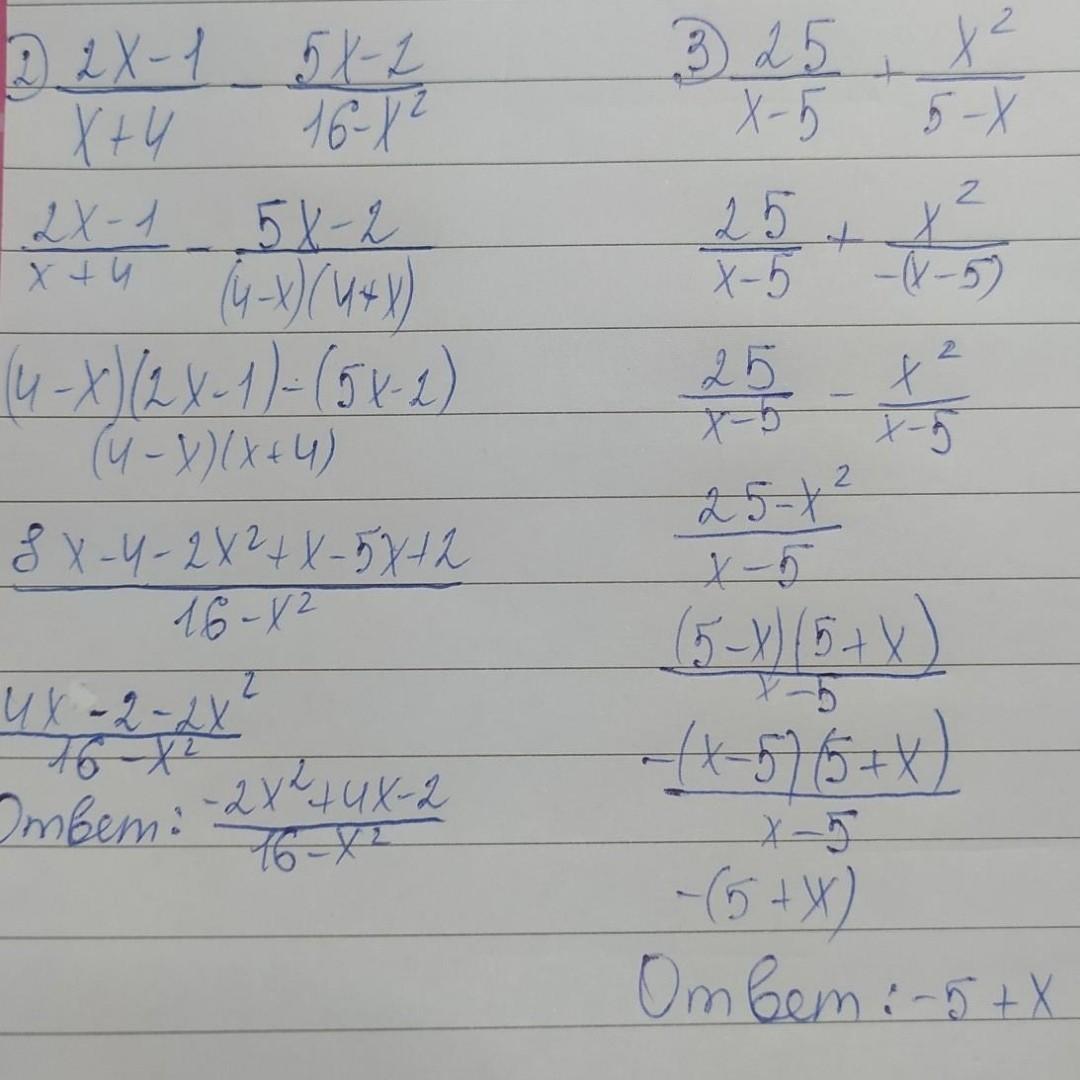 2) (2x-1)/(x+4) - (5x-2)/(16-x²)
(2x-1)/(x+4) - (5x-2)/((4-x)(4+x))
((4-x)(2x-1)-(5x-2))/((4-x)(x+4))
(8x-4-2x²+x-5x+2)/(16-x²)
(4x-2-2x²)/(16-x²)
Ответ: (-2x²+4x-2)/(16-x²)
3) 25/(x-5) + x²/(5-x)
25/(x-5) + x²/(-(x-5))
25/(x-5) - x²/(x-5)
(25-x²)/(x-5)
((5-x)(5+x))/(x-5)
(-(x-5)(5+x))/(x-5)
-(5+x)
Ответ: -5+x